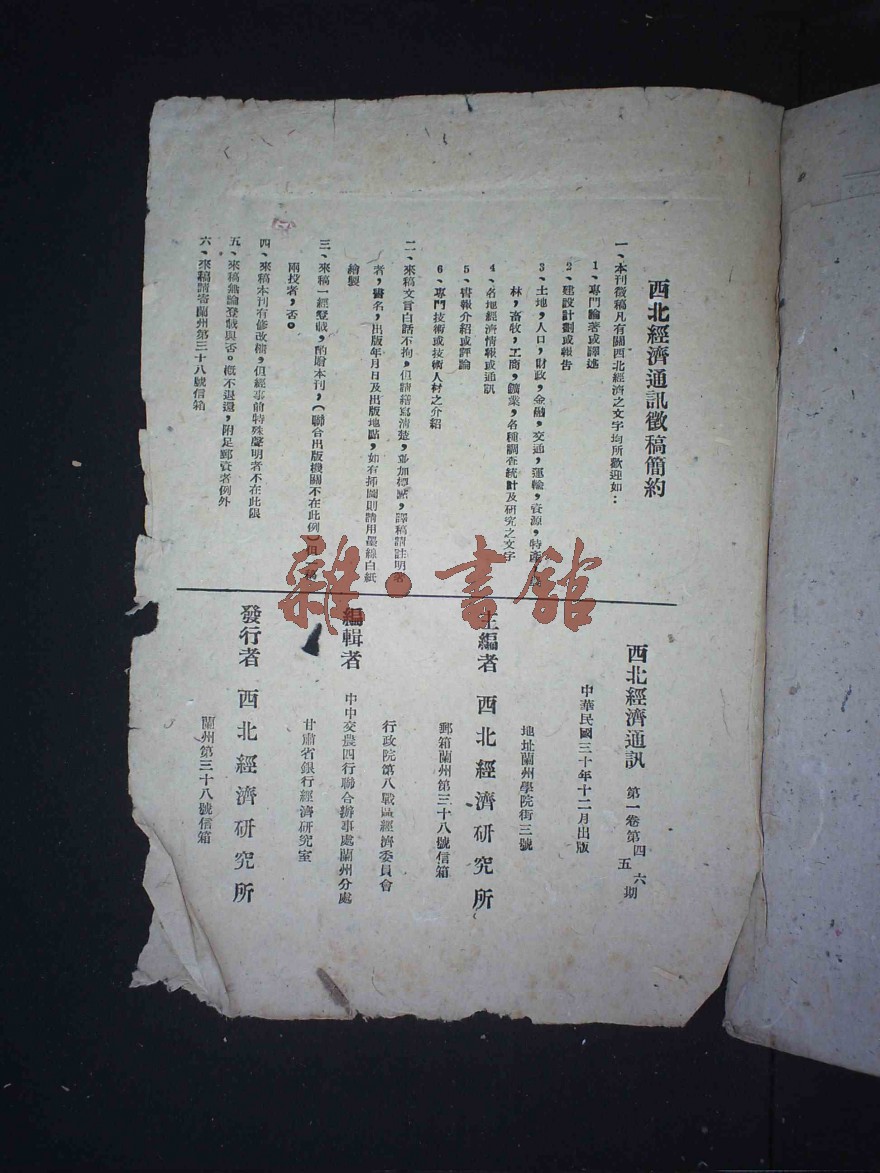 西北經濟通訊徵稿簡約
一、本刊徵稿凡有關西北經濟之文字均所歡迎如：
1、專門論著或譯述
2、建設計劃或報告
3、土地，人口，財政，金融，交通，運輸，資源，特產，
林，畜牧，工商，鑛業，各種調查統計及研究之文字
4、各地經濟情報或通訊
5、書報介紹或評論
6、專門技術或技術人材之介紹
二、來稿文言白話不拘，但請繕寫清楚，並加標點，譯稿請註明著
者，書名，出版年月日及出版地點，如有揷圖則請用墨綠白紙
繪製
三、來稿一經登載，酌贈本刊，（聯合出版機關不在此例）但一稿
兩投者，否。
四、來稿本刊有修改權，但經事前特殊聲明者不在此限
五、來稿無論登載與否。概不退還，附足郵資者例外
六、來稿請寄蘭州第三十八號信箱
西北經濟通訊 第一卷第四五六期
中華民國三十年十二月出版
地址蘭州學院街三號
主編者 西北經濟研究所
郵箱蘭州第三十八號信箱
行政院第八戰區經濟委員會
編輯者 中中交農四行聯合辦事處蘭州分處
甘肅省銀行經濟研究室
發行者 西北經濟研究所
蘭州第三十八號信箱
雜·書館